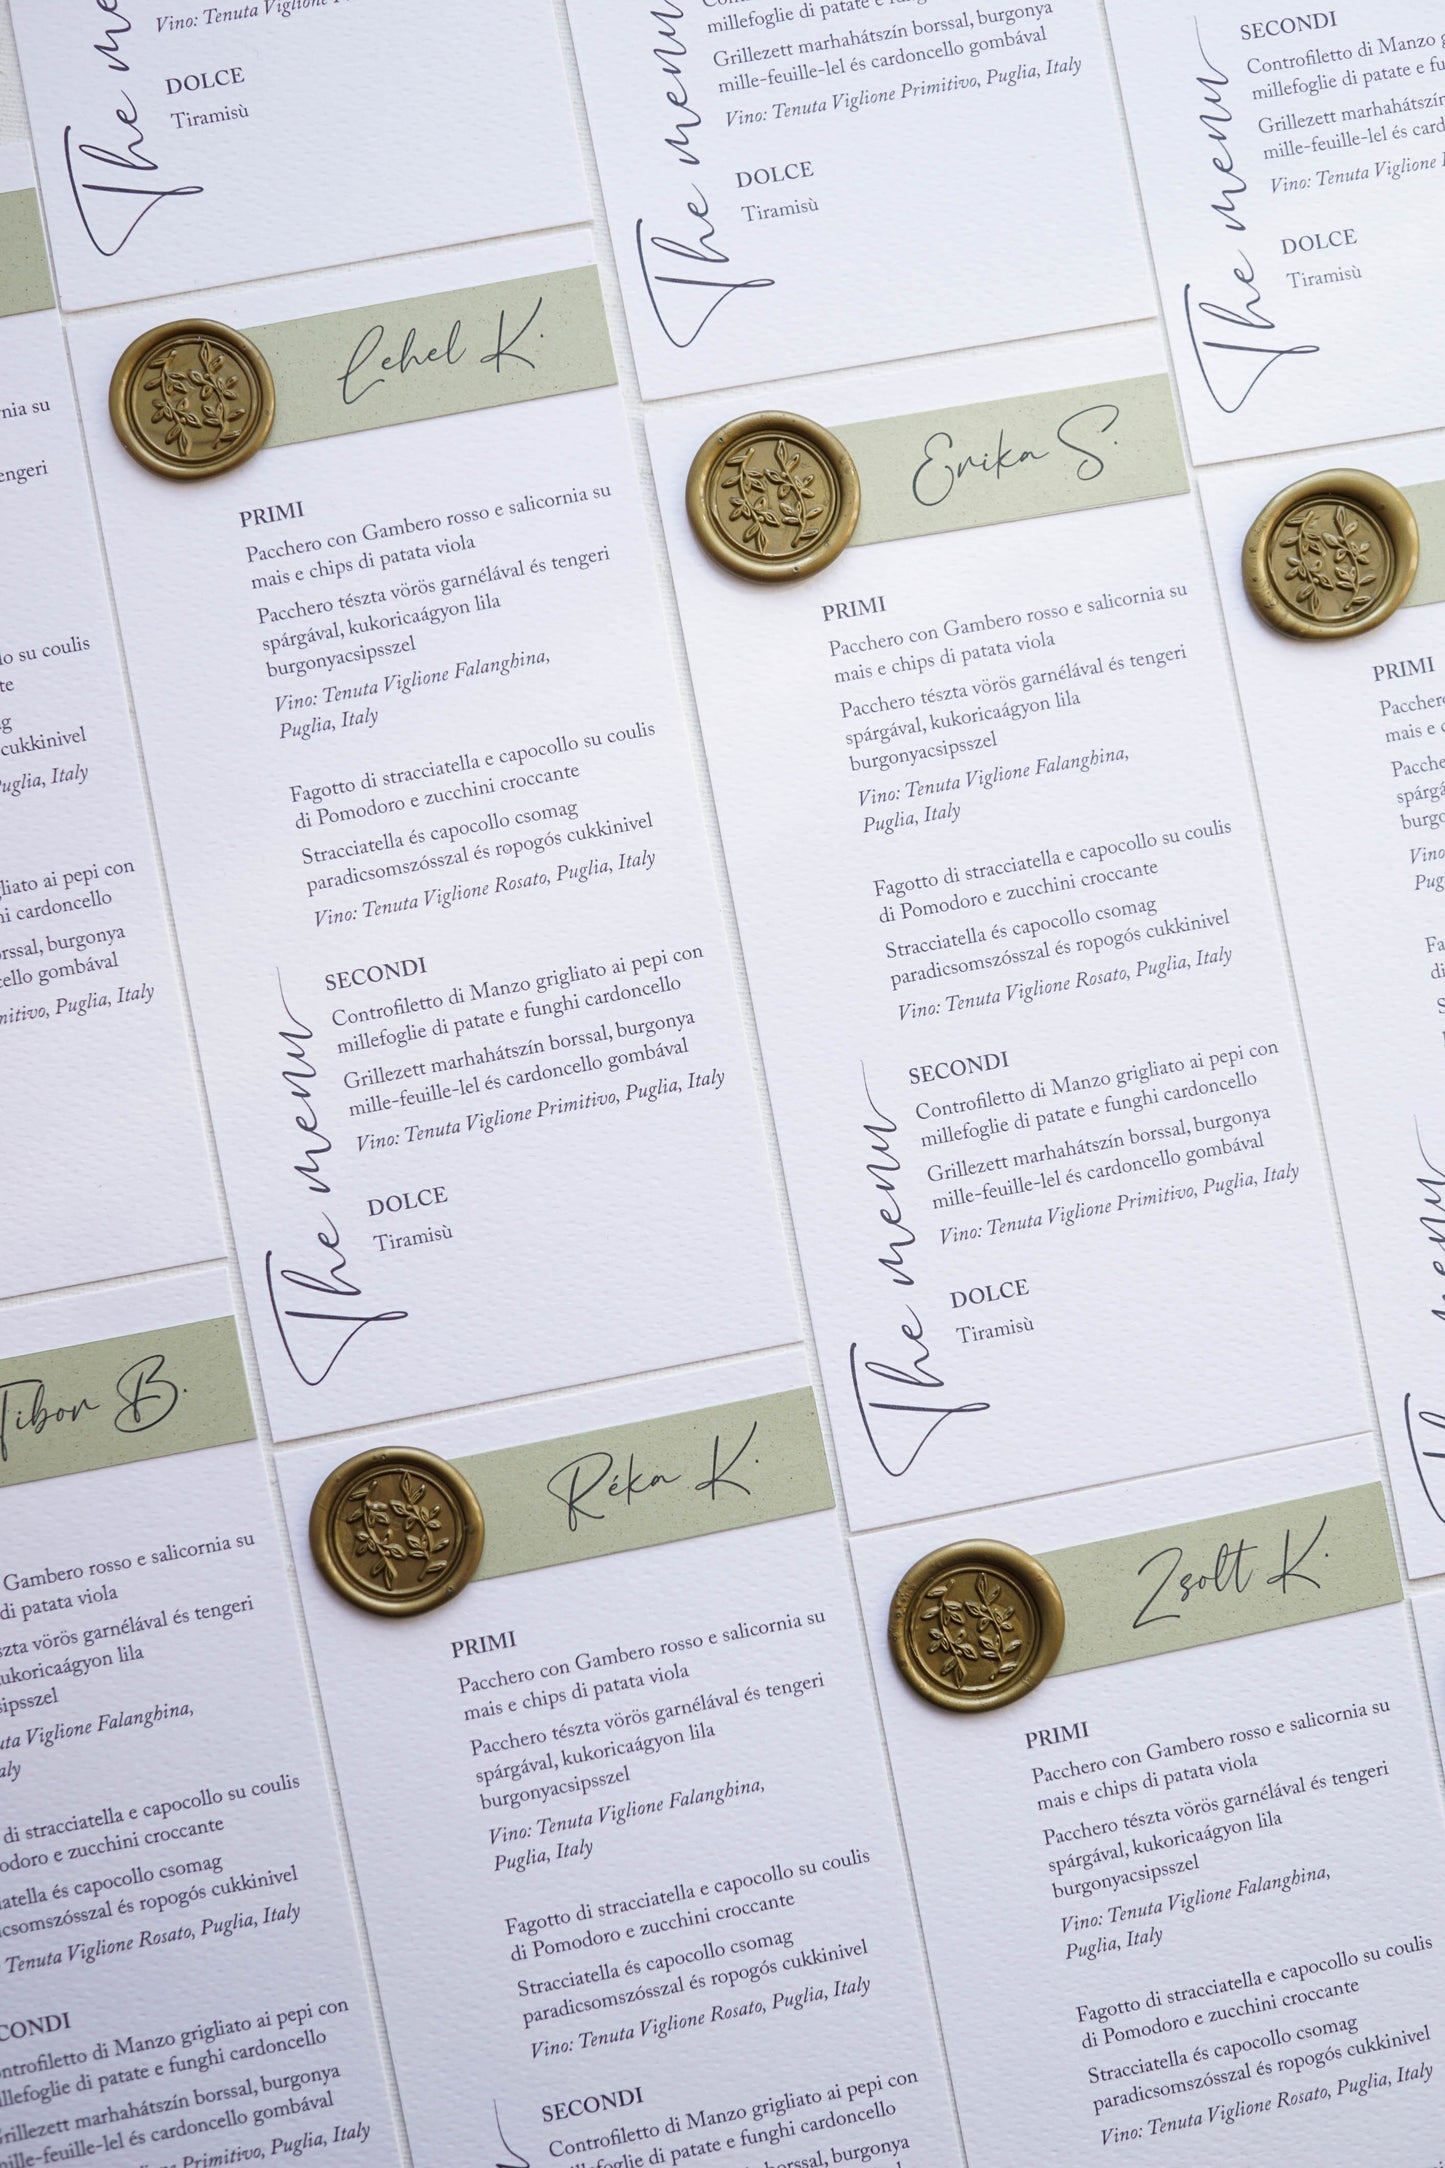 Vino: Tenuta Viglione
DOLCE
Tiramisù
The me
millefoglie di patate e
Grillezett marhahátszín borssal, burgonya
mille-feuille-lel és cardoncello gombával
Vino: Tenuta Viglione Primitivo, Puglia, Italy
DOLCE
Tiramisù
The menu
SECONDI
Controfiletto di Manzo
millefoglie di patate e fu
Grillezett marhahátszín
mille-feuille-lel és card
Vino: Tenuta Viglione
DOLCE
Tiramisù
The menu
nia su
engeri
lo su coulis
te
g
cukkinivel
Puglia, Italy
gliato ai pepi con
ni cardoncello
orssal, burgonya
cello gombával
mitivo, Puglia, Italy
Lehel K.
PRIMI
Pacchero con Gambero rosso e salicornia su
mais e chips di patata viola
Pacchero tészta vörös garnélával és tengeri
spárgával, kukoricaágyon lila
burgonyacsipsszel
Vino: Tenuta Viglione Falanghina,
Puglia, Italy
Fagotto di stracciatella e capocollo su coulis
di Pomodoro e zucchini croccante
Stracciatella és capocollo csomag
paradicsomszósszal és ropogós cukkinivel
Vino: Tenuta Viglione Rosato, Puglia, Italy
SECONDI
Controfiletto di Manzo grigliato ai pepi con
millefoglie di patate e funghi cardoncello
Grillezett marhahátszín borssal, burgonya
mille-feuille-lel és cardoncello gombával
Vino: Tenuta Viglione Primitivo, Puglia, Italy
DOLCE
Tiramisù
The menu
Erika S.
PRIMI
Pacchero con Gambero rosso e salicornia su
mais e chips di patata viola
Pacchero tészta vörös garnélával és tengeri
spárgával, kukoricaágyon lila
burgonyacsipsszel
Vino: Tenuta Viglione Falanghina,
Puglia, Italy
Fagotto di stracciatella e capocollo su coulis
di Pomodoro e zucchini croccante
Stracciatella és capocollo csomag
paradicsomszósszal és ropogós cukkinivel
Vino: Tenuta Viglione Rosato, Puglia, Italy
SECONDI
Controfiletto di Manzo grigliato ai pepi con
millefoglie di patate e funghi cardoncello
Grillezett marhahátszín borssal, burgonya
mille-feuille-lel és cardoncello gombával
Vino: Tenuta Viglione Primitivo, Puglia, Italy
DOLCE
Tiramisù
The menu
PRIMI
Pacchero
mais e c
Pacche
spárgá
burgo
Vino
Pug
Fa
di
S
enu
Tibor B.
Gambero rosso e salicornia su
di patata viola
szta vörös garnélával és tengeri
ukoricaágyon lila
sipsszel
uta Viglione Falanghina,
aly
di stracciatella e capocollo su coulis
odoro e zucchini croccante
iatella és capocollo csomag
icsomszósszal és ropogós cukkinivel
Tenuta Viglione Rosato, Puglia, Italy
CONDI
ontrofiletto di Manzo grigliato ai pepi con
illefoglie di patate e funghi cardoncello
Grillezett marhahátszín borssal, burgonya
mille-feuille-lel és cardoncello gombával
Primitivo, Puglia, Italy
Réka K.
PRIMI
Pacchero con Gambero rosso e salicornia su
mais e chips di patata viola
Pacchero tészta vörös garnélával és tengeri
spárgával, kukoricaágyon lila
burgonyacsipsszel
Vino: Tenuta Viglione Falanghina,
Puglia, Italy
Fagotto di stracciatella e capocollo su coulis
di Pomodoro e zucchini croccante
Stracciatella és capocollo csomag
paradicsomszósszal és ropogós cukkinivel
Vino: Tenuta Viglione Rosato, Puglia, Italy
SECONDI
Controfiletto di Manzo grigliato ai pepi con
millefoglie di patate e funghi cardoncello
orssal, burgonya
Zsolt K.
PRIMI
Pacchero con Gambero rosso e salicornia su
mais e chips di patata viola
Pacchero tészta vörös garnélával és tengeri
spárgával, kukoricaágyon lila
burgonyacsipsszel
Vino: Tenuta Viglione Falanghina,
Puglia, Italy
Fagotto di stracciatella e capocollo su coulis
di Pomodoro e zucchini croccante
Stracciatella és capocollo csomag
paradicsomszósszal és ropogós cukkinivel
Vino: Tenuta Viglione Rosato, Puglia, Italy